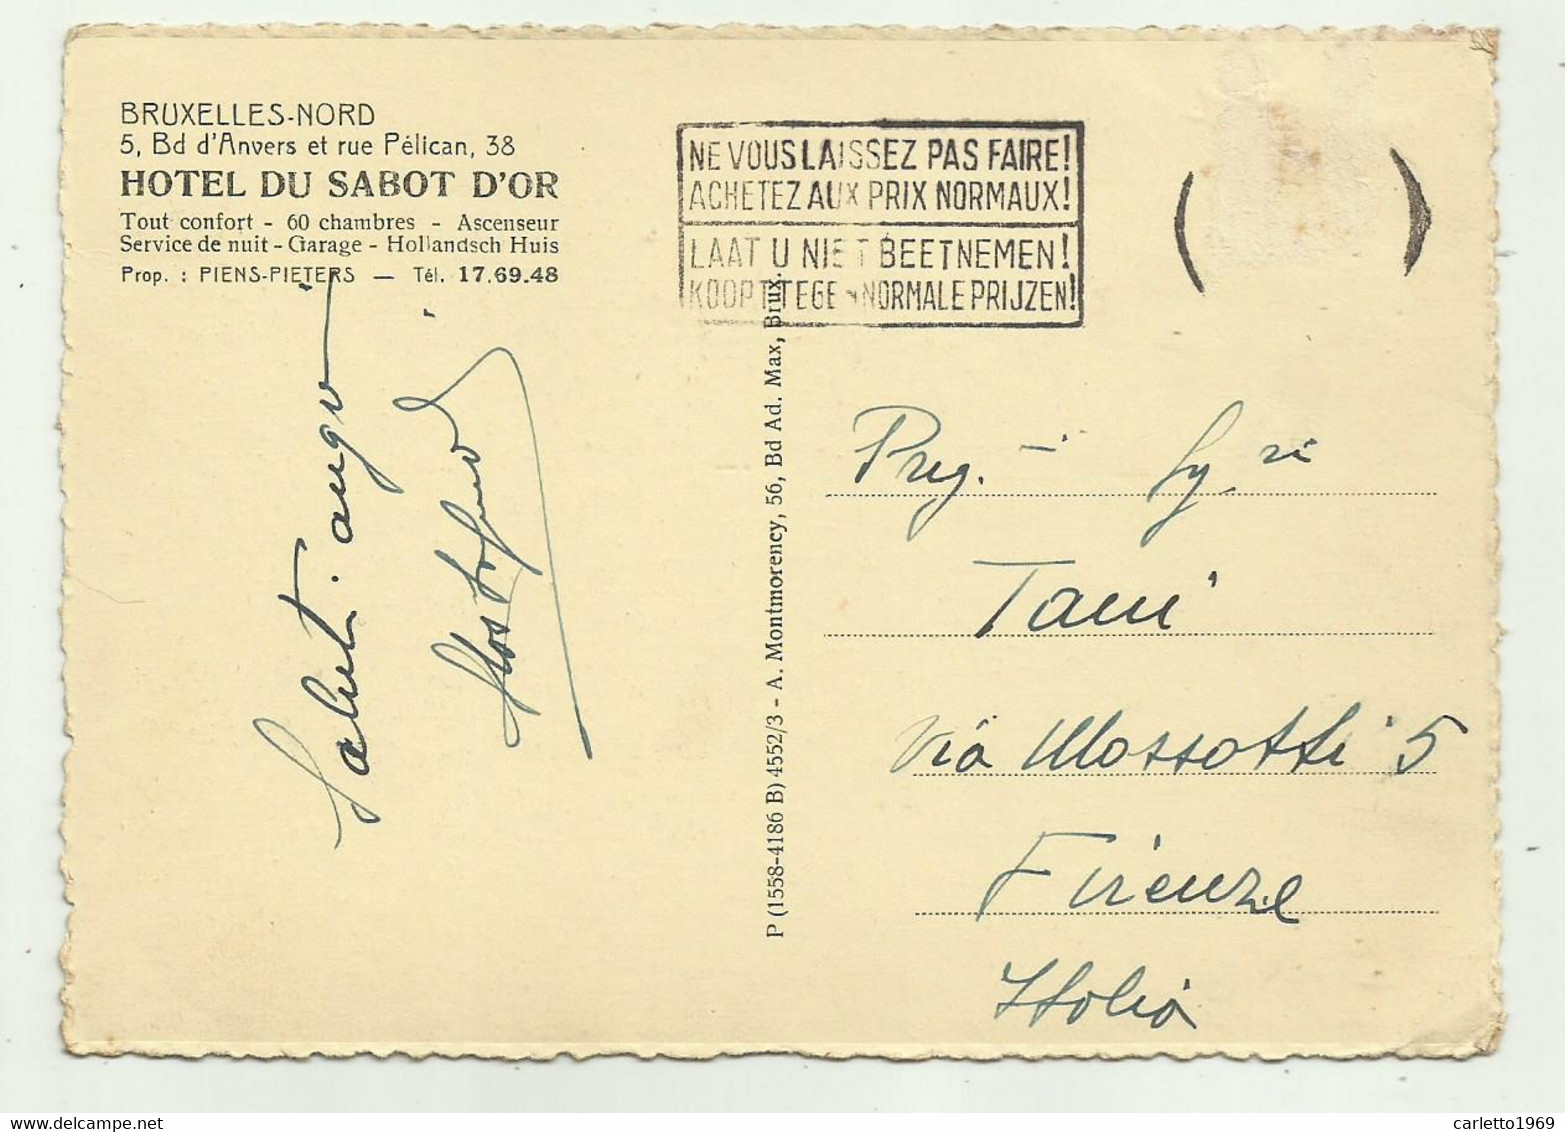 BRUXELLES-NORD
5, Bd d'Anvers et rue Pélican, 38
HOTEL DU SABOT D'OR
Tout confort - 60 chambres - Ascenseur
Service de nuit - Garage - Hollandsch Huis
Prop. : PIENS-PIETERS — Tél. 17.69.48
NE VOUS LAISSEZ PAS FAIRE!
ACHETEZ AUX PRIX NORMAUX!
LAAT U NIET BEETNEMEN!
KOOPT TEGEN NORMALE PRIJZEN!
Saluti
P (1558-4186 B) 4552/3 - A. Montmorency, 56, Bd Ad. Max, Brux.
Preg.
Tani
Via Mossotti 5
Firenze
Italia
carletto1969